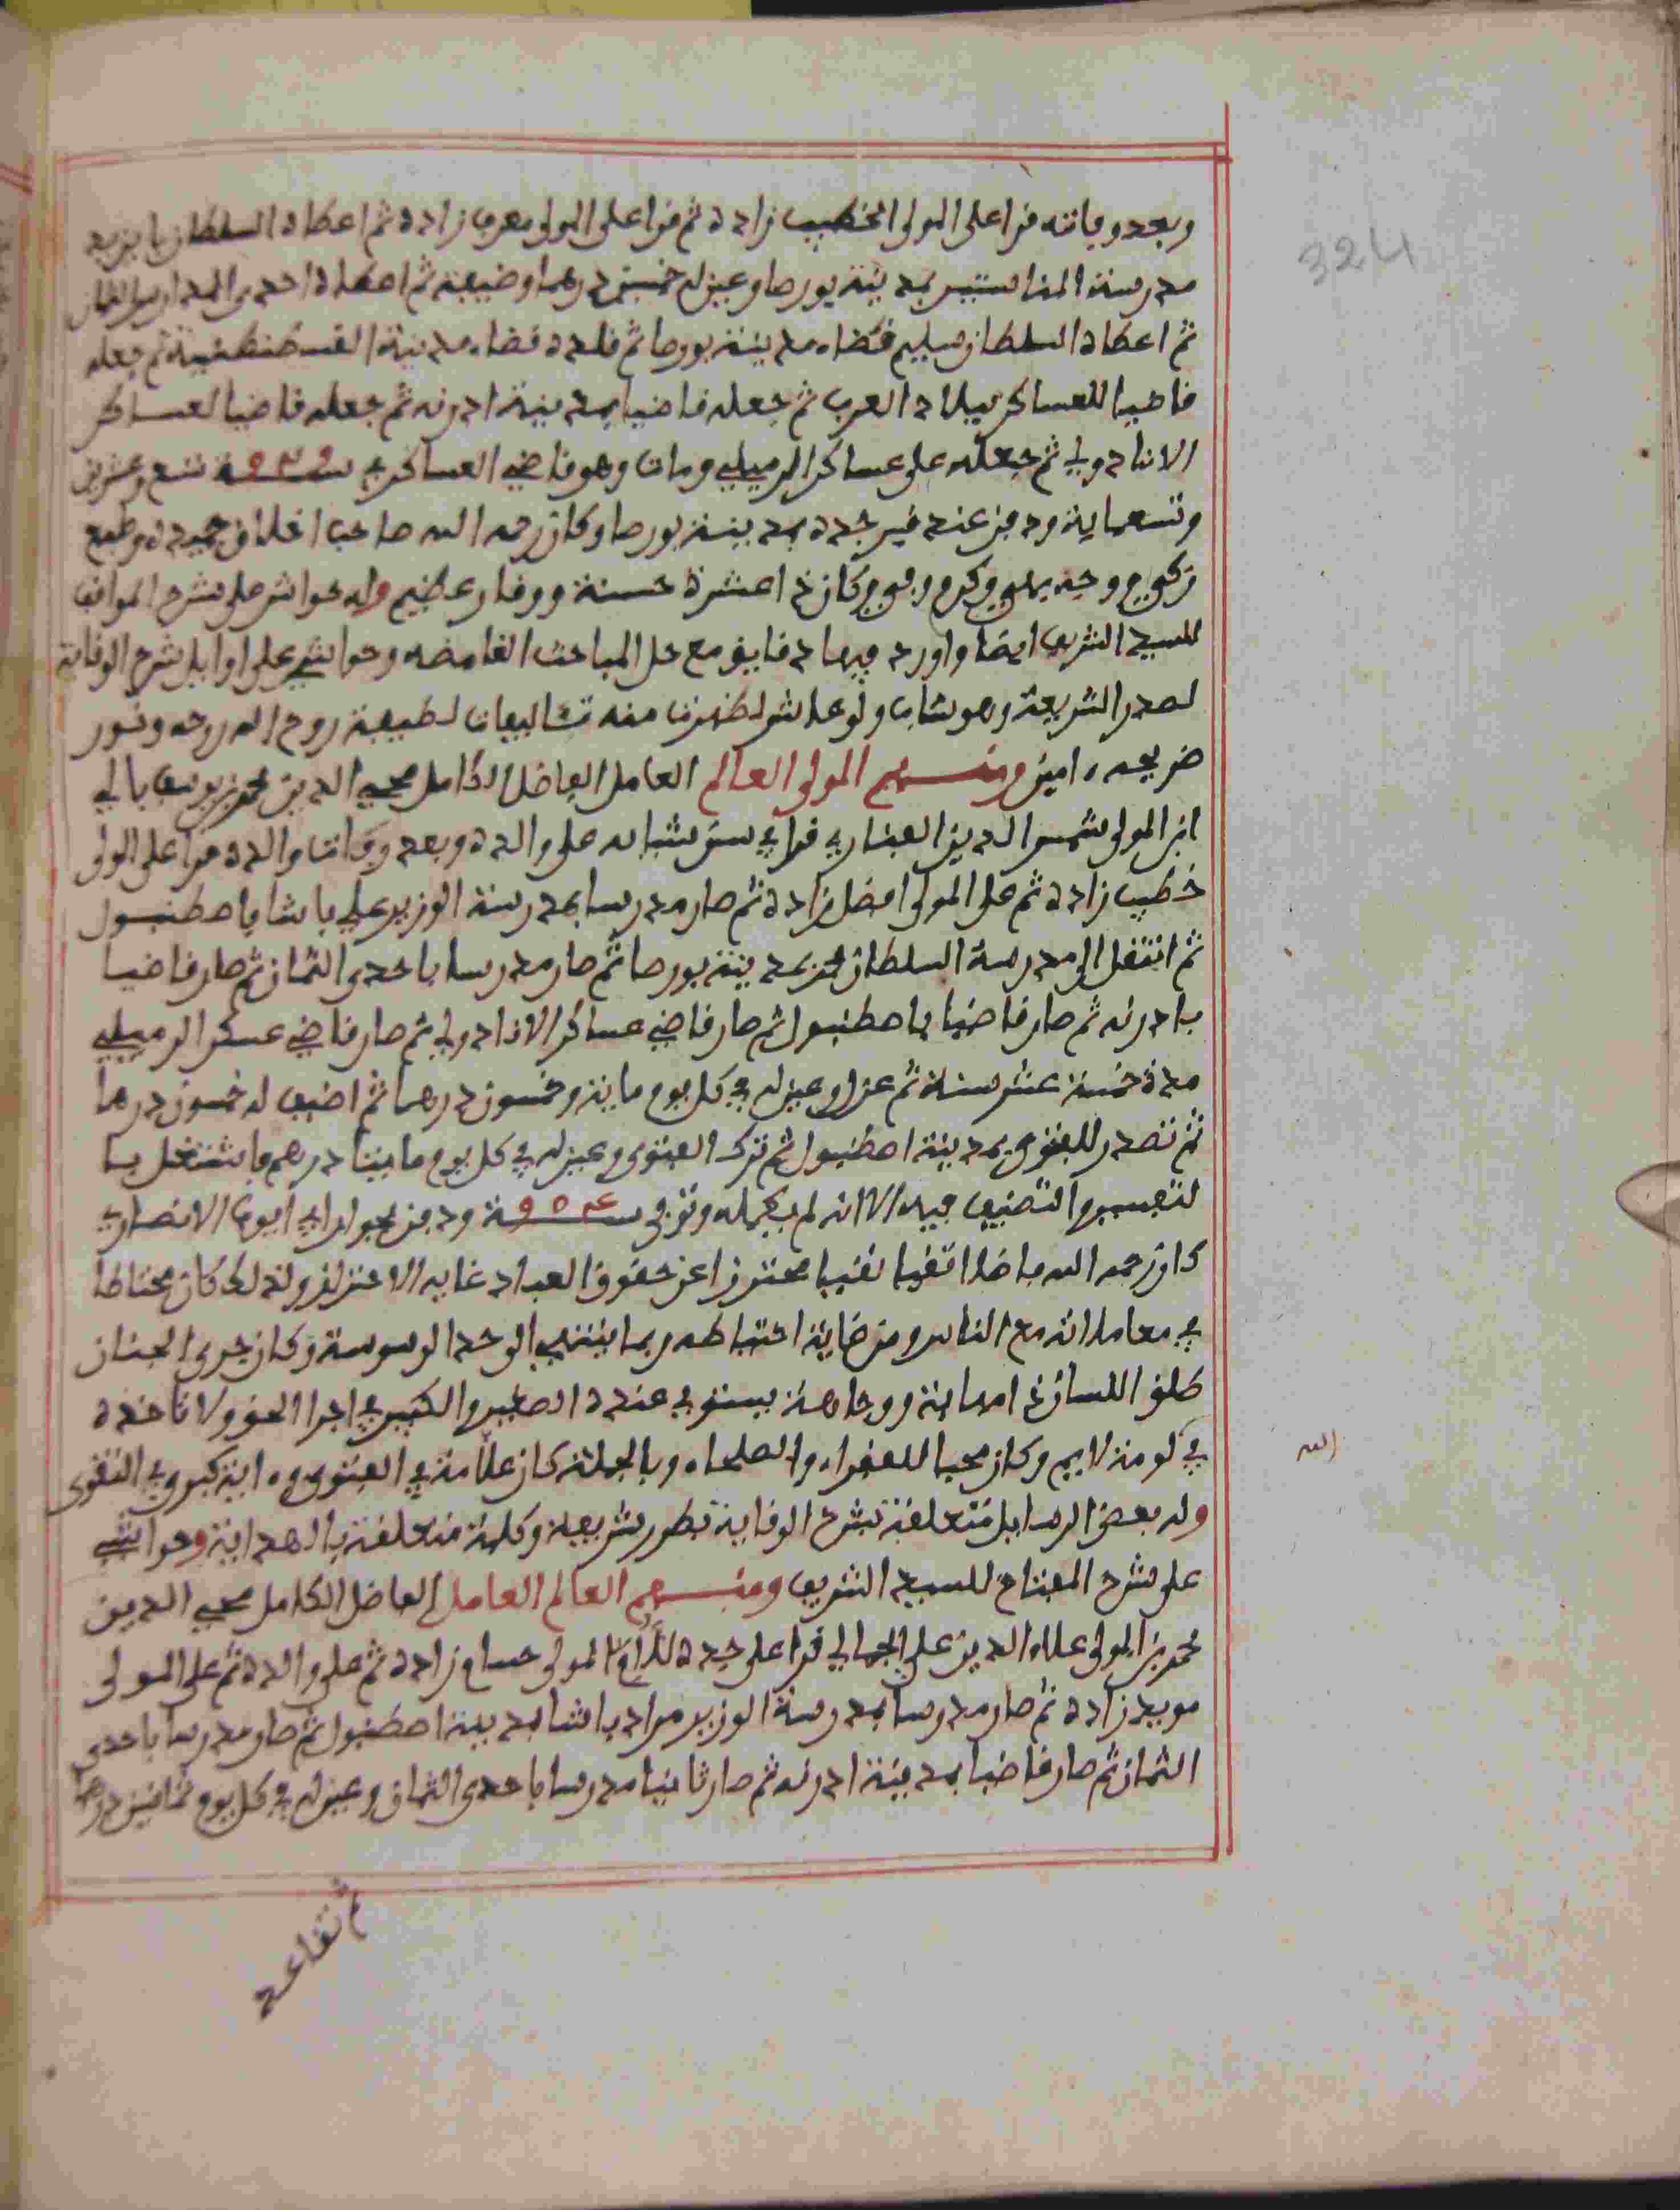 324
وبعد وفاته قرا على المولى الخطيب زاده ثم قرا على المولى معرف زاده ثم اعطاه السلطان بايزيد
مدرسة المناستير بمدينة بورصا وعين له خمسين درهما وضيعة ثم اعطاه احدى المدارس الثمان
ثم اعطاه السلطان سليم قضاء مدينة بورصا ثم قلده قضاء مدينة القسطنطينية ثم جعله
قاضيا للعساكر ببلاد العرب ثم جعله قاضيا بمدينة ادرنه ثم جعله قاضيا لعساكر
الانادولي ثم جعله على عساكر الرميلي ومات وهو قاضي العساكر في سنة ٩٢٩ تسع وعشرين
وتسعماية ودفن عند قبر جده بمدينة بورصا وكان رحمه الله صاحب اخلاق حميدة وطبع
زكي ووجه بهي وكرم وفي وكان ذا عشرة حسنة ووقار عظيم وله حواش على شرح المواقف
للسيد الشريف ايضا واورد فيها دقايق مع حل المباحث الغامضه وحواشي على اوايل شرح الوقاية
لصدر الشريعة وهو شاب ولو عاش لظهرت منه تاليفات لطيفة روح الله روحه ونور
ضريحه ءامين ومنهم المولى العالم العامل الفاضل الكامل محيي الدين محمد بن يوسف بالي
ابن المولى شمس الدين الفناري قرا في سن شبابه على والده وبعد وفات والده قرا على المولى
خطيب زاده ثم على المولى افضل زاده ثم صار مدرسا بمدرسة الوزير علي باشا باصطنبول
ثم انتقل الى مدرسة السلطان محمد بمدينة بورصا ثم صار مدرسا باحدى الثمان ثم صار قاضيا
بادرنه ثم صار قاضيا باصطنبول ثم صار قاضي عساكر الانادولي ثم صار قاضي عسكر الرميلي
مدة خمسة عشر سنة ثم عزل وعين له في كل يوم ماية وخمسون درهما ثم اضيف له خمسون درهما
ثم تصدر للفتوى بمدينة اصطنبول ثم ترك الفتوى وعين له في كل يوم مايتا درهم واشتغل با
لتفسير والتصنيف فيه الا انه لم يكمله وتوفي سنة ٩٥٤ ودفن بجوار ابي ايوب الانصاري
كان رحمه الله فاضلا تقيا نقيا محترزا عن حقوق العباد غاية الاحتراز ولذلك كان محتاطا
في معاملاته مع الناس ومن غاية احتياطه ربما ينتهي الى حد الوسوسة وكان جري الجنان
طلق اللسان ذا مهابة ووجاهة يستوي عنده الصغير والكبير في اجرا الحق ولا تاخذه
في لومة لايم وكان محبا للفقراء والصلحاء وبالجملة كان علامة في الفتوى وءاية كبرى في التقوى
الله
وله بعض الرسايل متعلقة بشرح الوقاية لصدر شريعة وكلمة متعلقة بالهداية وحواشي
على شرح المفتاح للسيد الشريف ومنهم العالم العامل الفاضل الكامل محيي الدين
محمد بن المولى علاء الدين علي الجمالي قرا على جده المولى حسام زاده ثم على والده ثم على المولى
مويد زاده ثم صار مدرسا بمدرسة الوزير مراد باشا بمدينة اصطنبول ثم صار مدرسا باحدى
الثمان ثم صار قاضيا بمدينة ادرنه ثم صار ثانيا مدرسا باحدى الثمان وعين له في كل يوم ثمانين درهما
ثم تقاعد